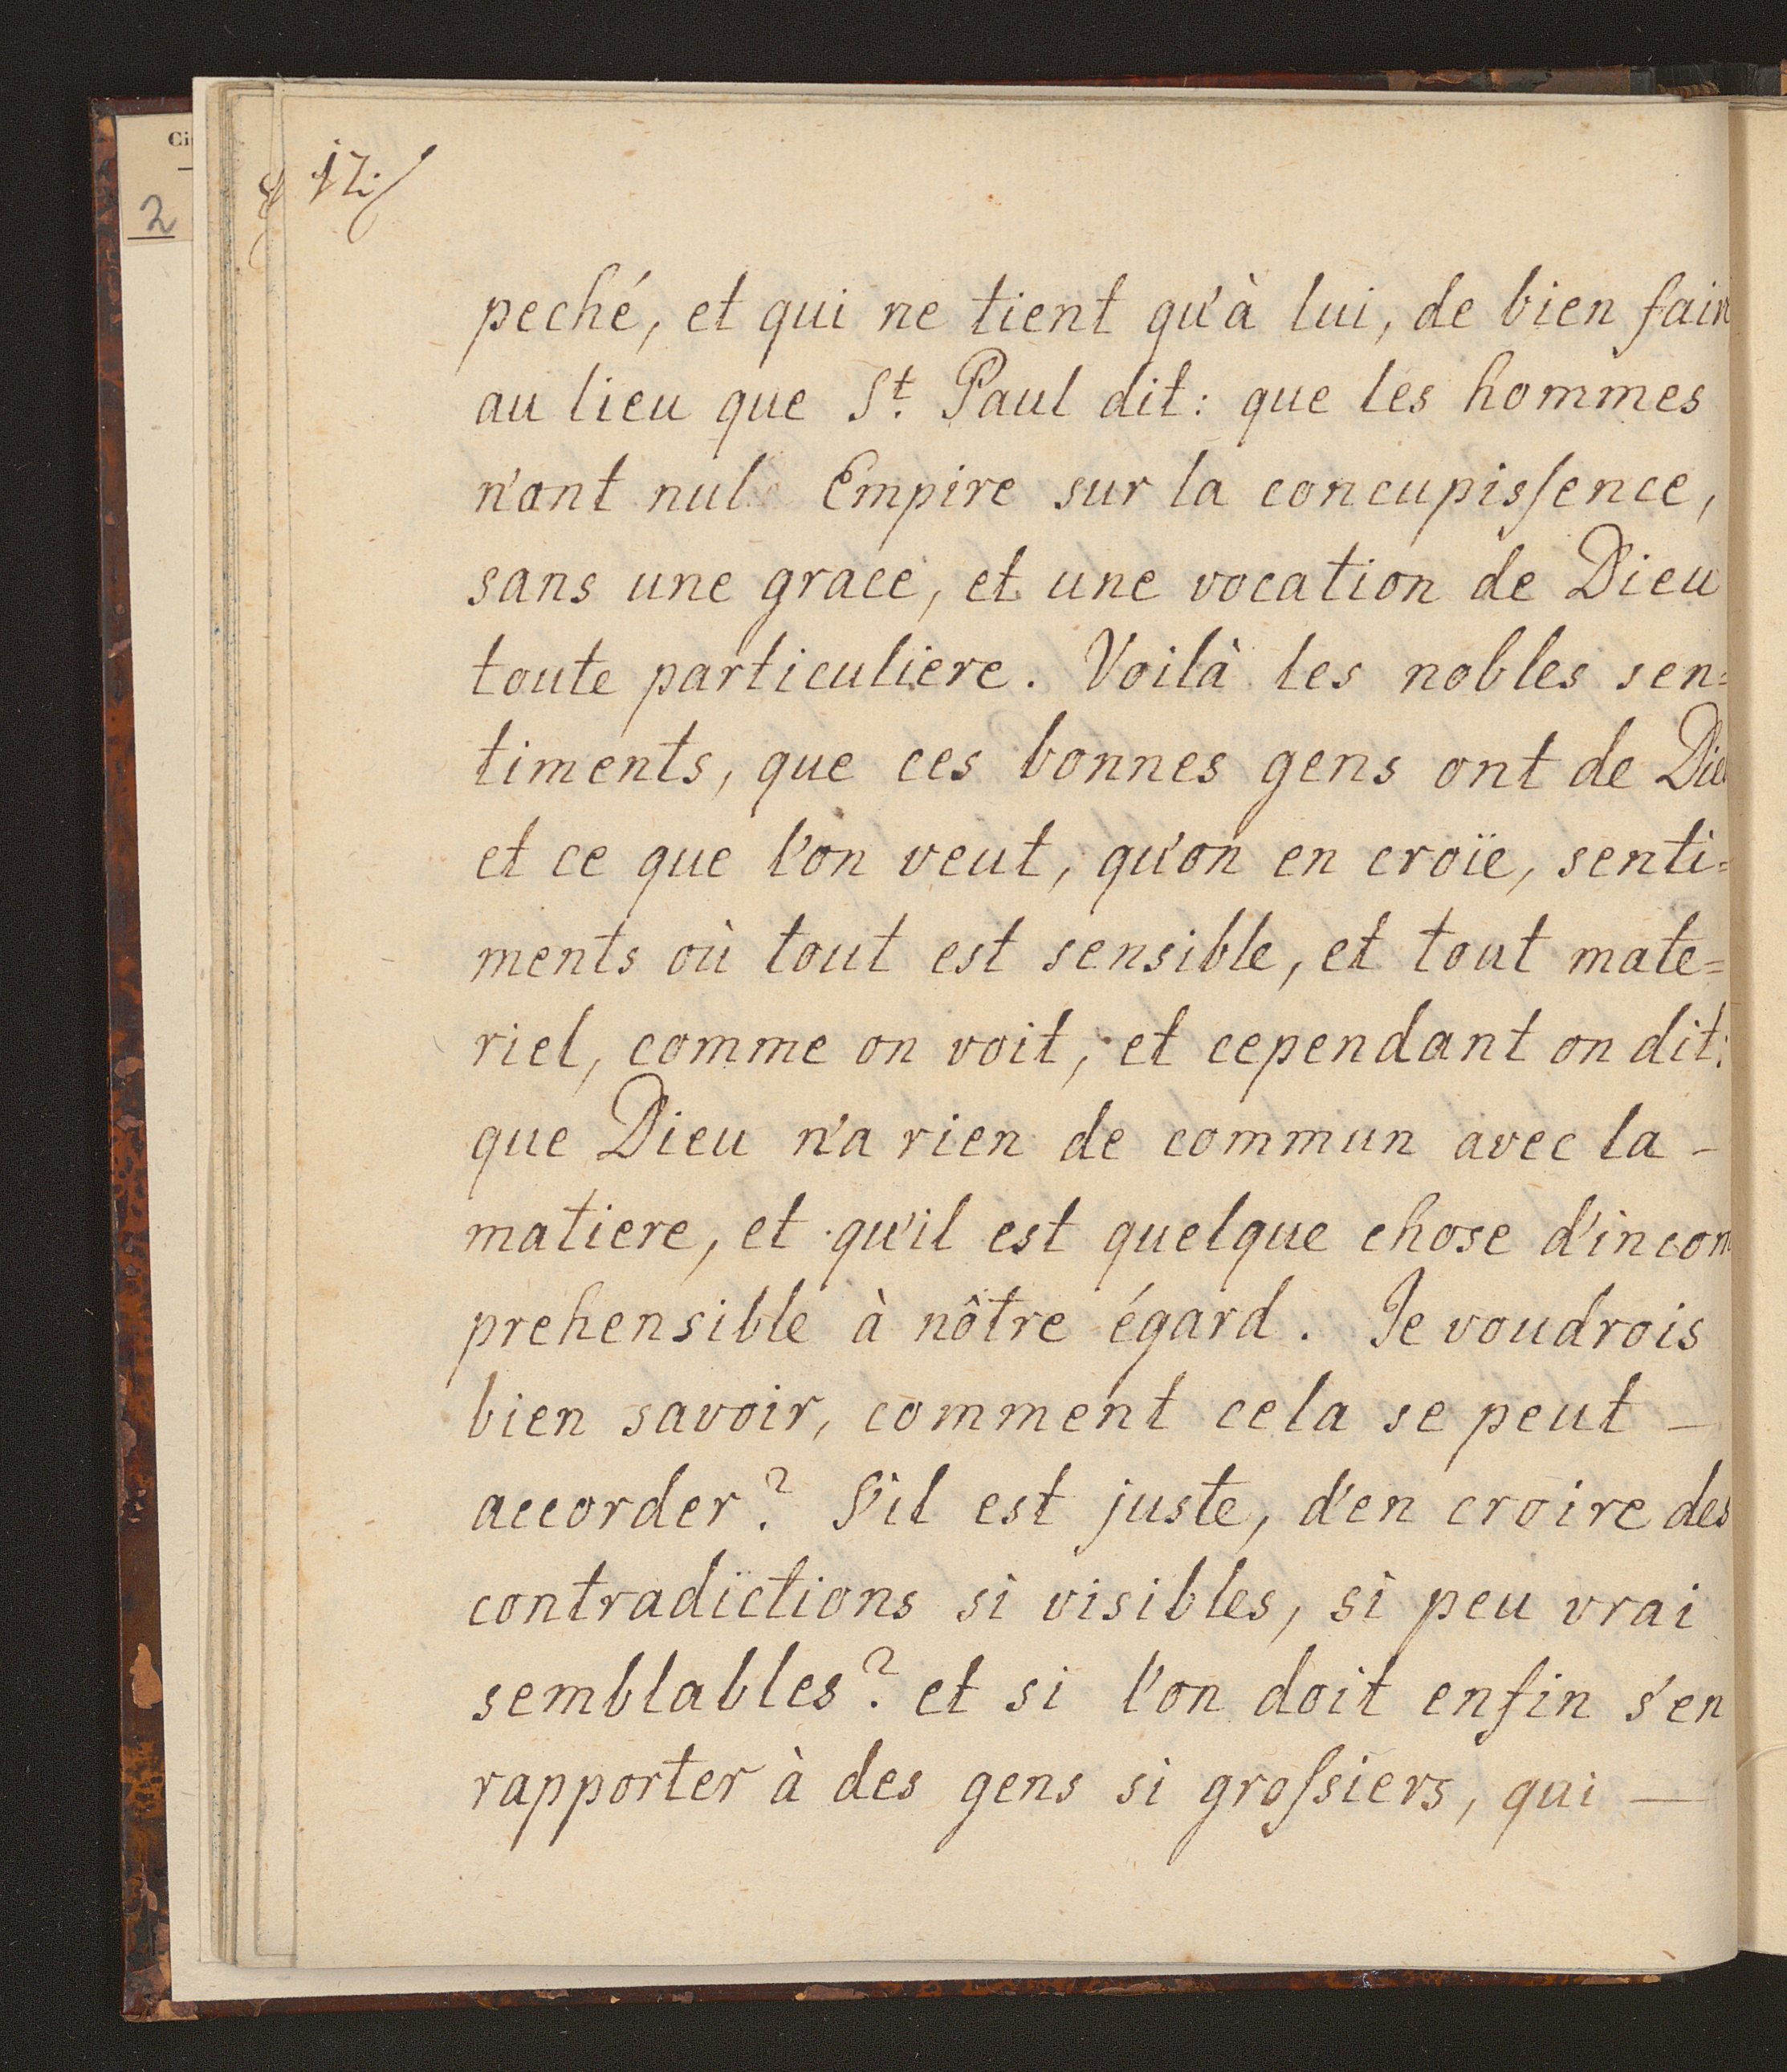 Ci
2
12
peché, et qui ne tient qu'à lui, de bien fair
au lieu que St. Paul dit: que les hommes
n'ont nul Empire sur la concupisſence,
sans une grace, et une vocation de Dieu
toute particuliere. Voilà les nobles sen=
timents, que ces bonnes gens ont de Dieu
et ce que l'on veut, qu'on en croïe, senti=
ments où tout est sensible, et tout mate=
riel, comme on voit, et cependant on dit:
que Dieu n'a rien de commun avec la -
matiere, et qu'il est quelque chose d'incom
prehensible à nôtre égard. Je voudrois
bien savoir, comment cela se peut —
accorder? S'il est juste, d'en croire des
contradictions si visibles, si peu vrai
semblables? et si l'on doit enfin s'en
rapporter à des gens si groſsiers, qui —